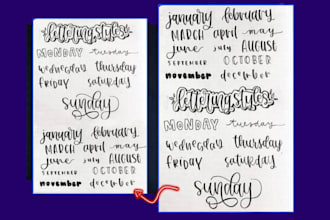 letteringstyles
MONDAY tuesday
wednesday thursday
FRIDAY saturday
sunday
january february
MARCH april may
june july AUGUST
SEPTEMBER OCTOBER
november december
january february
MARCH april may
june july AUGUST
SEPTEMBER OCTOBER
november december
letteringstyles
MONDAY tuesday
wednesday thursday
FRIDAY saturday
sunday